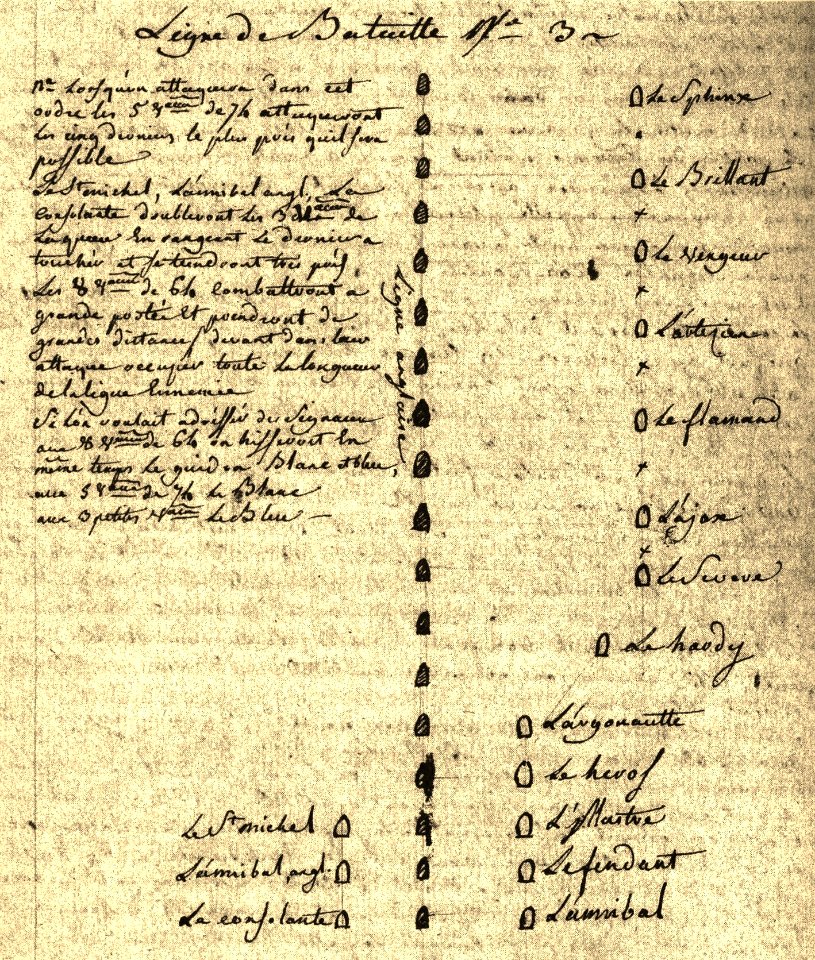 Ligne de Batuille Nº 3
nª Lorsqu'on attaquera dans cet
ordre les 5 vaux de 74 attaqueront
Les cinq derniers, le plus près quil sera
possible
Le St michel, L'annibal angl., La
consolante doubleront les 3 vaux de
La queue En rangeant Le dernier a
toucher et se tiendront tres près
Les 8 vaux de 64 combattront a
grande portée et prendront de
grandes distances devant dans leur
attaque occuper toute La longueur
de la ligne Ennemie
Si l'on voulait adresser des Signaux
aux 8 vaux de 64 on hisseroit En
même temps Le guidon Blanc et bleu,
aux 5 vaux de 74 Le Blanc
aux 3 petits vaux Le Bleu
Ligne anglaise
Le Sphinx
Le Brillant
Le vengeur
L'artezien
Le flamand
L'ajax
Le Severe
Le hardy
L'argonautte
Le heros
L'illustre
Le fendant
L'annibal
Le St michel
L'annibal angl.
La consolante